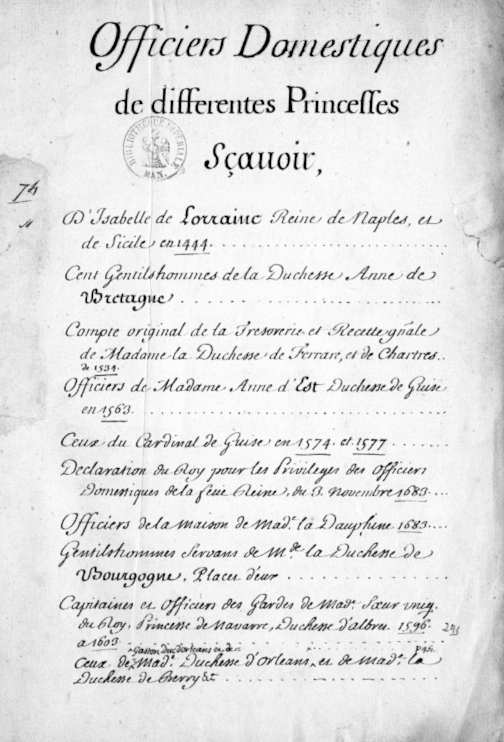 Officiers Domestiques
de differentes Princesses
Sçavoir,
BIBLIOTHEQUE IMPERIALE
MAN.
74
D'Isabelle de Lorraine Reine de Naples, et
de Sicile en 1444.
Cent Gentilshommes de la Duchesse Anne de
Bretagne
Compte original de la Tresorerie et Recette gñale
de Madame la Duchesse de Ferrare, et de Chartres..
de 1534.
Officiers de Madame Anne d'Est Duchesse de Guise
en 1563.
Ceux du Cardinal de Guise en 1574 et 1577
Declaration du Roy pour les Privileges des Officiers
Domestiques de la feüe Reine, du 3. Novembre 1683.
Officiers de la maison de Mad.e la Dauphine 1683.
Gentilshommes Servans de M.de la Duchesse de
Bourgogne, Placet d'eux
Capitaines et Officiers des Gardes de Mad.e Sœur uniq.
du Roy, Princesse de Navarre, Duchesse d'albret. 1596.
a 1603
Gaston duc d'orleans et de
Ceux de Mad.e Duchesse d'Orleans, et de Mad.e la
Duchesse de Berry &c.